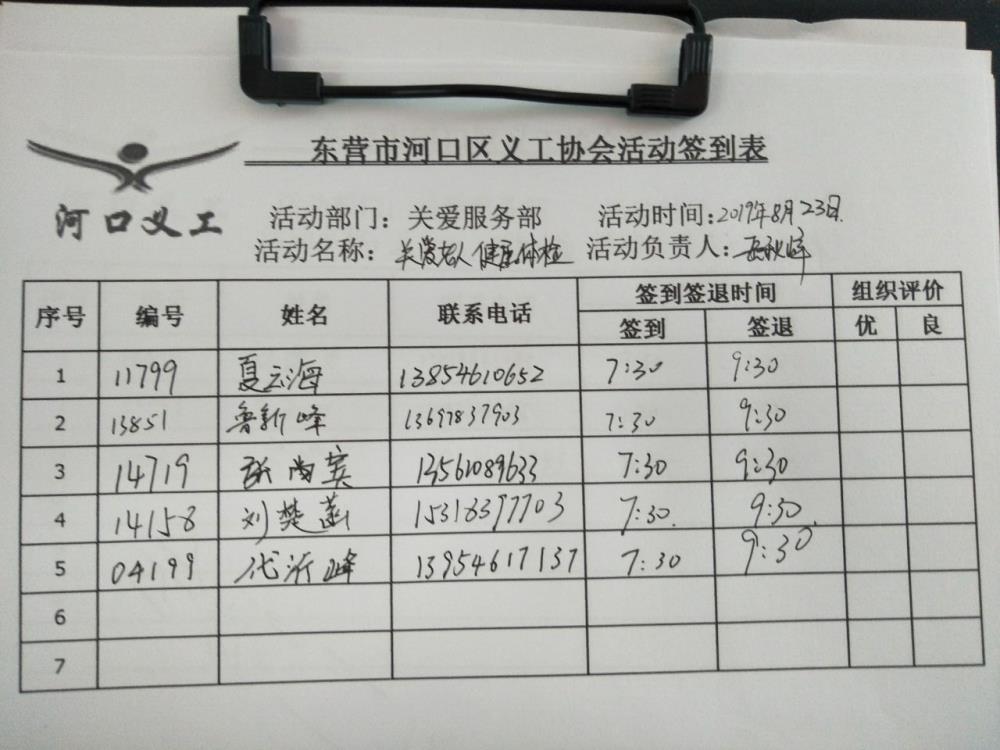 东营市河口区义工协会活动签到表
河口义工
活动部门：关爱服务部 活动时间：2019年8月23日.
活动名称：关爱老人健康体检 活动负责人：
序号 编号 姓名 联系电话 签到签退时间 组织评价
签到 签退 优 良
1 11799 夏云海 13854610652 7:30 9:30
2 13851 鲁新峰 13697837903 7:30 9:30
3 14719 13561089633 7:30 9:30
4 14158 刘楚菡 15318397703 7:30. 9:30.
5 04199 代沂峰 13954617137 7:30 9:30
6
7